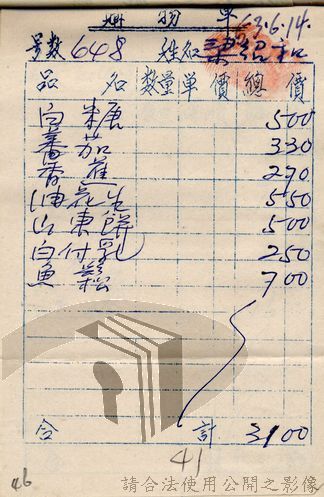 購物單 63.6.14.
号數 648 姓名
品名 數量 單價 總價
白糖 500
蕃茄 330
香蕉 270
油花生 550
山東餅 500
白付乳 250
魚鬆 700
合計 3100
41
46
請合法使用公開之影像